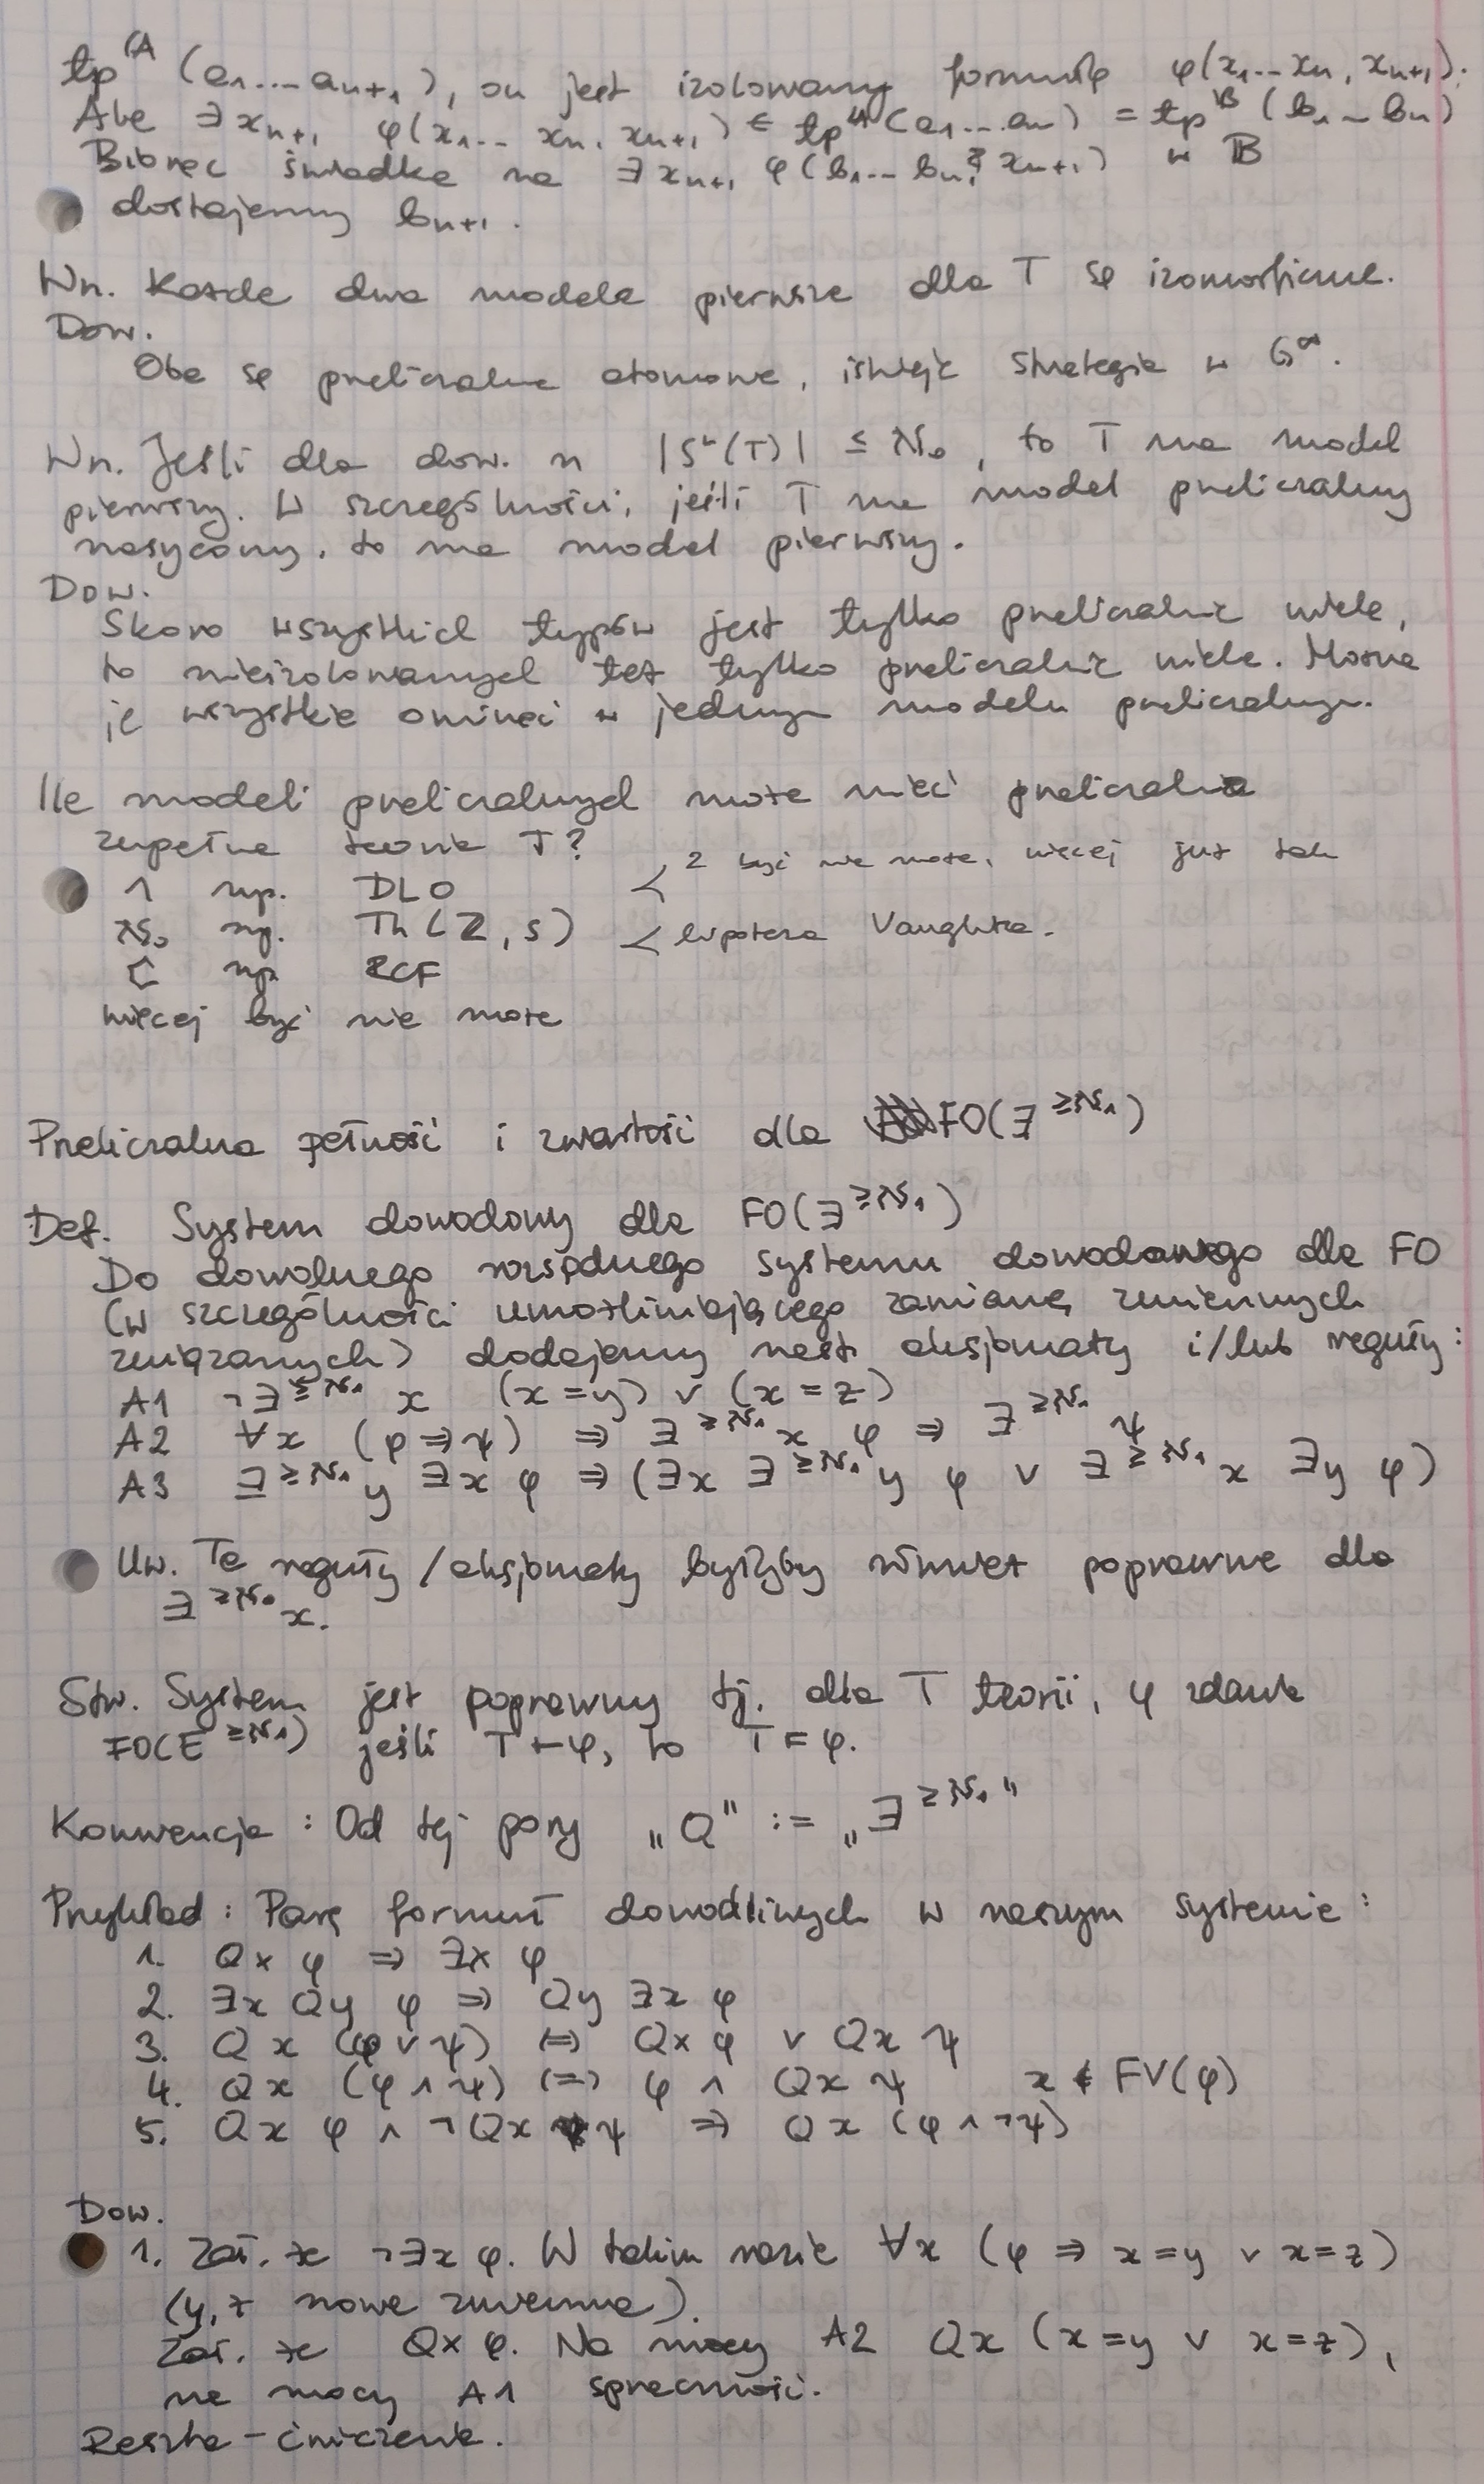 tp^𝔸 (a₁...aₙ₊₁), on jest izolowany formułą φ(x₁...xₙ, xₙ₊₁).
Ale ∃xₙ₊₁ φ(x₁...xₙ, xₙ₊₁) ∈ tp^𝔸(a₁...aₙ) = tp^𝔹(b₁...bₙ)
Biorąc świadka na ∃xₙ₊₁ φ(b₁...bₙ, xₙ₊₁) w 𝔹
dostajemy bₙ₊₁.
Wn. Każde dwa modele pierwsze dla T są izomorficzne.
Dow.
Oba są przeliczalne atomowe, istnieje strategia w G^∞.
Wn. Jeśli dla dow. n |Sⁿ(T)| ≤ ℵ₀, to T ma model
pierwszy. W szczególności, jeśli T ma model przeliczalny
nasycony, to ma model pierwszy.
Dow.
Skoro wszystkich typów jest tylko przeliczalnie wiele,
to nieizolowanych też tylko przeliczalnie wiele. Można
je wszystkie ominąć w jednym modelu przeliczalnym.
Ile modeli przeliczalnych może mieć przeliczalna
zupełna teoria T?
1 np. DLO < 2 być nie może, więcej już tak
ℵ₀ np. Th(ℤ, s) < hipoteza Vaughta.
ℭ np RCF
więcej być nie może
Przeliczalna pełność i zwartość dla FO(∃^≥ℵ₁)
Def. System dowodowy dla FO(∃^≥ℵ₁)
Do dowolnego rozsądnego systemu dowodowego dla FO
(w szczególności umożliwiającego zamianę zmiennych
związanych) dodajemy nast. aksjomaty i/lub reguły:
A1 ¬∃^≥ℵ₁ x (x=y) ∨ (x=z)
A2 ∀x (φ⇒ψ) ⇒ ∃^≥ℵ₁ x φ ⇒ ∃^≥ℵ₁ ψ
A3 ∃^≥ℵ₁ y ∃x φ ⇒ (∃x ∃^≥ℵ₁ y φ ∨ ∃^≥ℵ₁ x ∃y φ)
Uw. Te reguły/aksjomaty byłyby również poprawne dla
∃^≥ℵ₀ x.
Stw. System jest poprawny tj. dla T teorii, φ zdanie
FO(∃^≥ℵ₁) jeśli T ⊢ φ, to T ⊨ φ.
Konwencja: Od tej pory „Q" := „∃^≥ℵ₁"
Przykład: Parę formuł dowodliwych w naszym systemie:
1. Qx φ ⇒ ∃x φ
2. ∃x Qy φ ⇒ Qy ∃x φ
3. Qx (φ∨ψ) ⇔ Qx φ ∨ Qx ψ
4. Qx (φ∧ψ) ⇔ φ ∧ Qx ψ x ∉ FV(φ)
5. Qx φ ∧ ¬Qx ψ ⇒ Qx (φ∧¬ψ)
Dow.
1. Zał. że ¬∃x φ. W takim razie ∀x (φ ⇒ x=y ∨ x=z)
(y, z nowe zmienne).
Zał. że Qx φ. Na mocy A2 Qx (x=y ∨ x=z),
na mocy A1 sprzeczność.
Reszta - ćwiczenie.